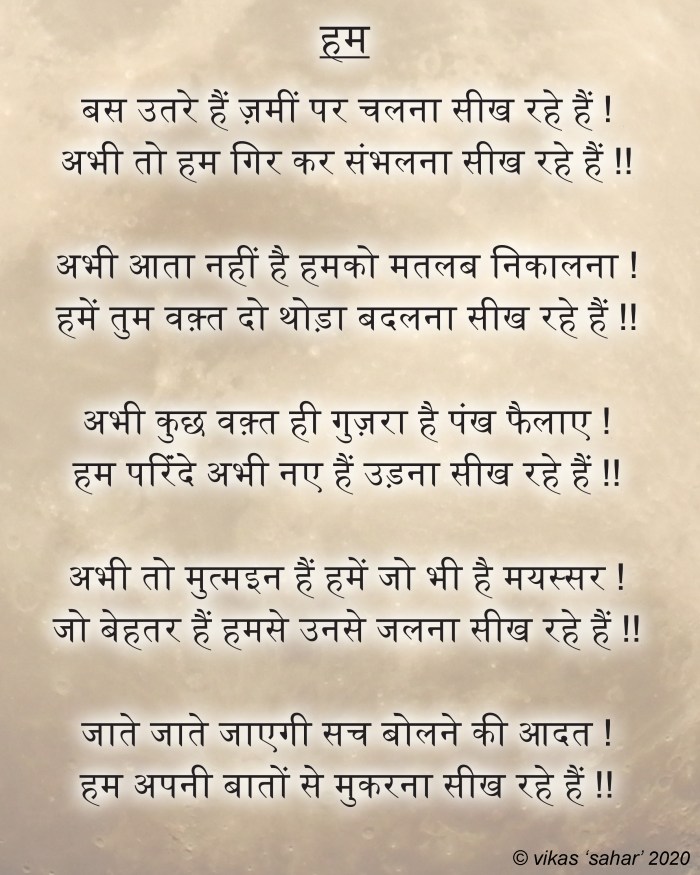 हम
बस उतरे हैं ज़मीं पर चलना सीख रहे हैं !
अभी तो हम गिर कर संभलना सीख रहे हैं !!
अभी आता नहीं है हमको मतलब निकालना !
हमें तुम वक़्त दो थोड़ा बदलना सीख रहे हैं !!
अभी कुछ वक़्त ही गुज़रा है पंख फैलाए !
हम परिंदे अभी नए हैं उड़ना सीख रहे हैं !!
अभी तो मुत्मइन हैं हमें जो भी है मयस्सर !
जो बेहतर हैं हमसे उनसे जलना सीख रहे हैं !!
जाते जाते जाएगी सच बोलने की आदत !
हम अपनी बातों से मुकरना सीख रहे हैं !!
© vikas ‘sahar’ 2020